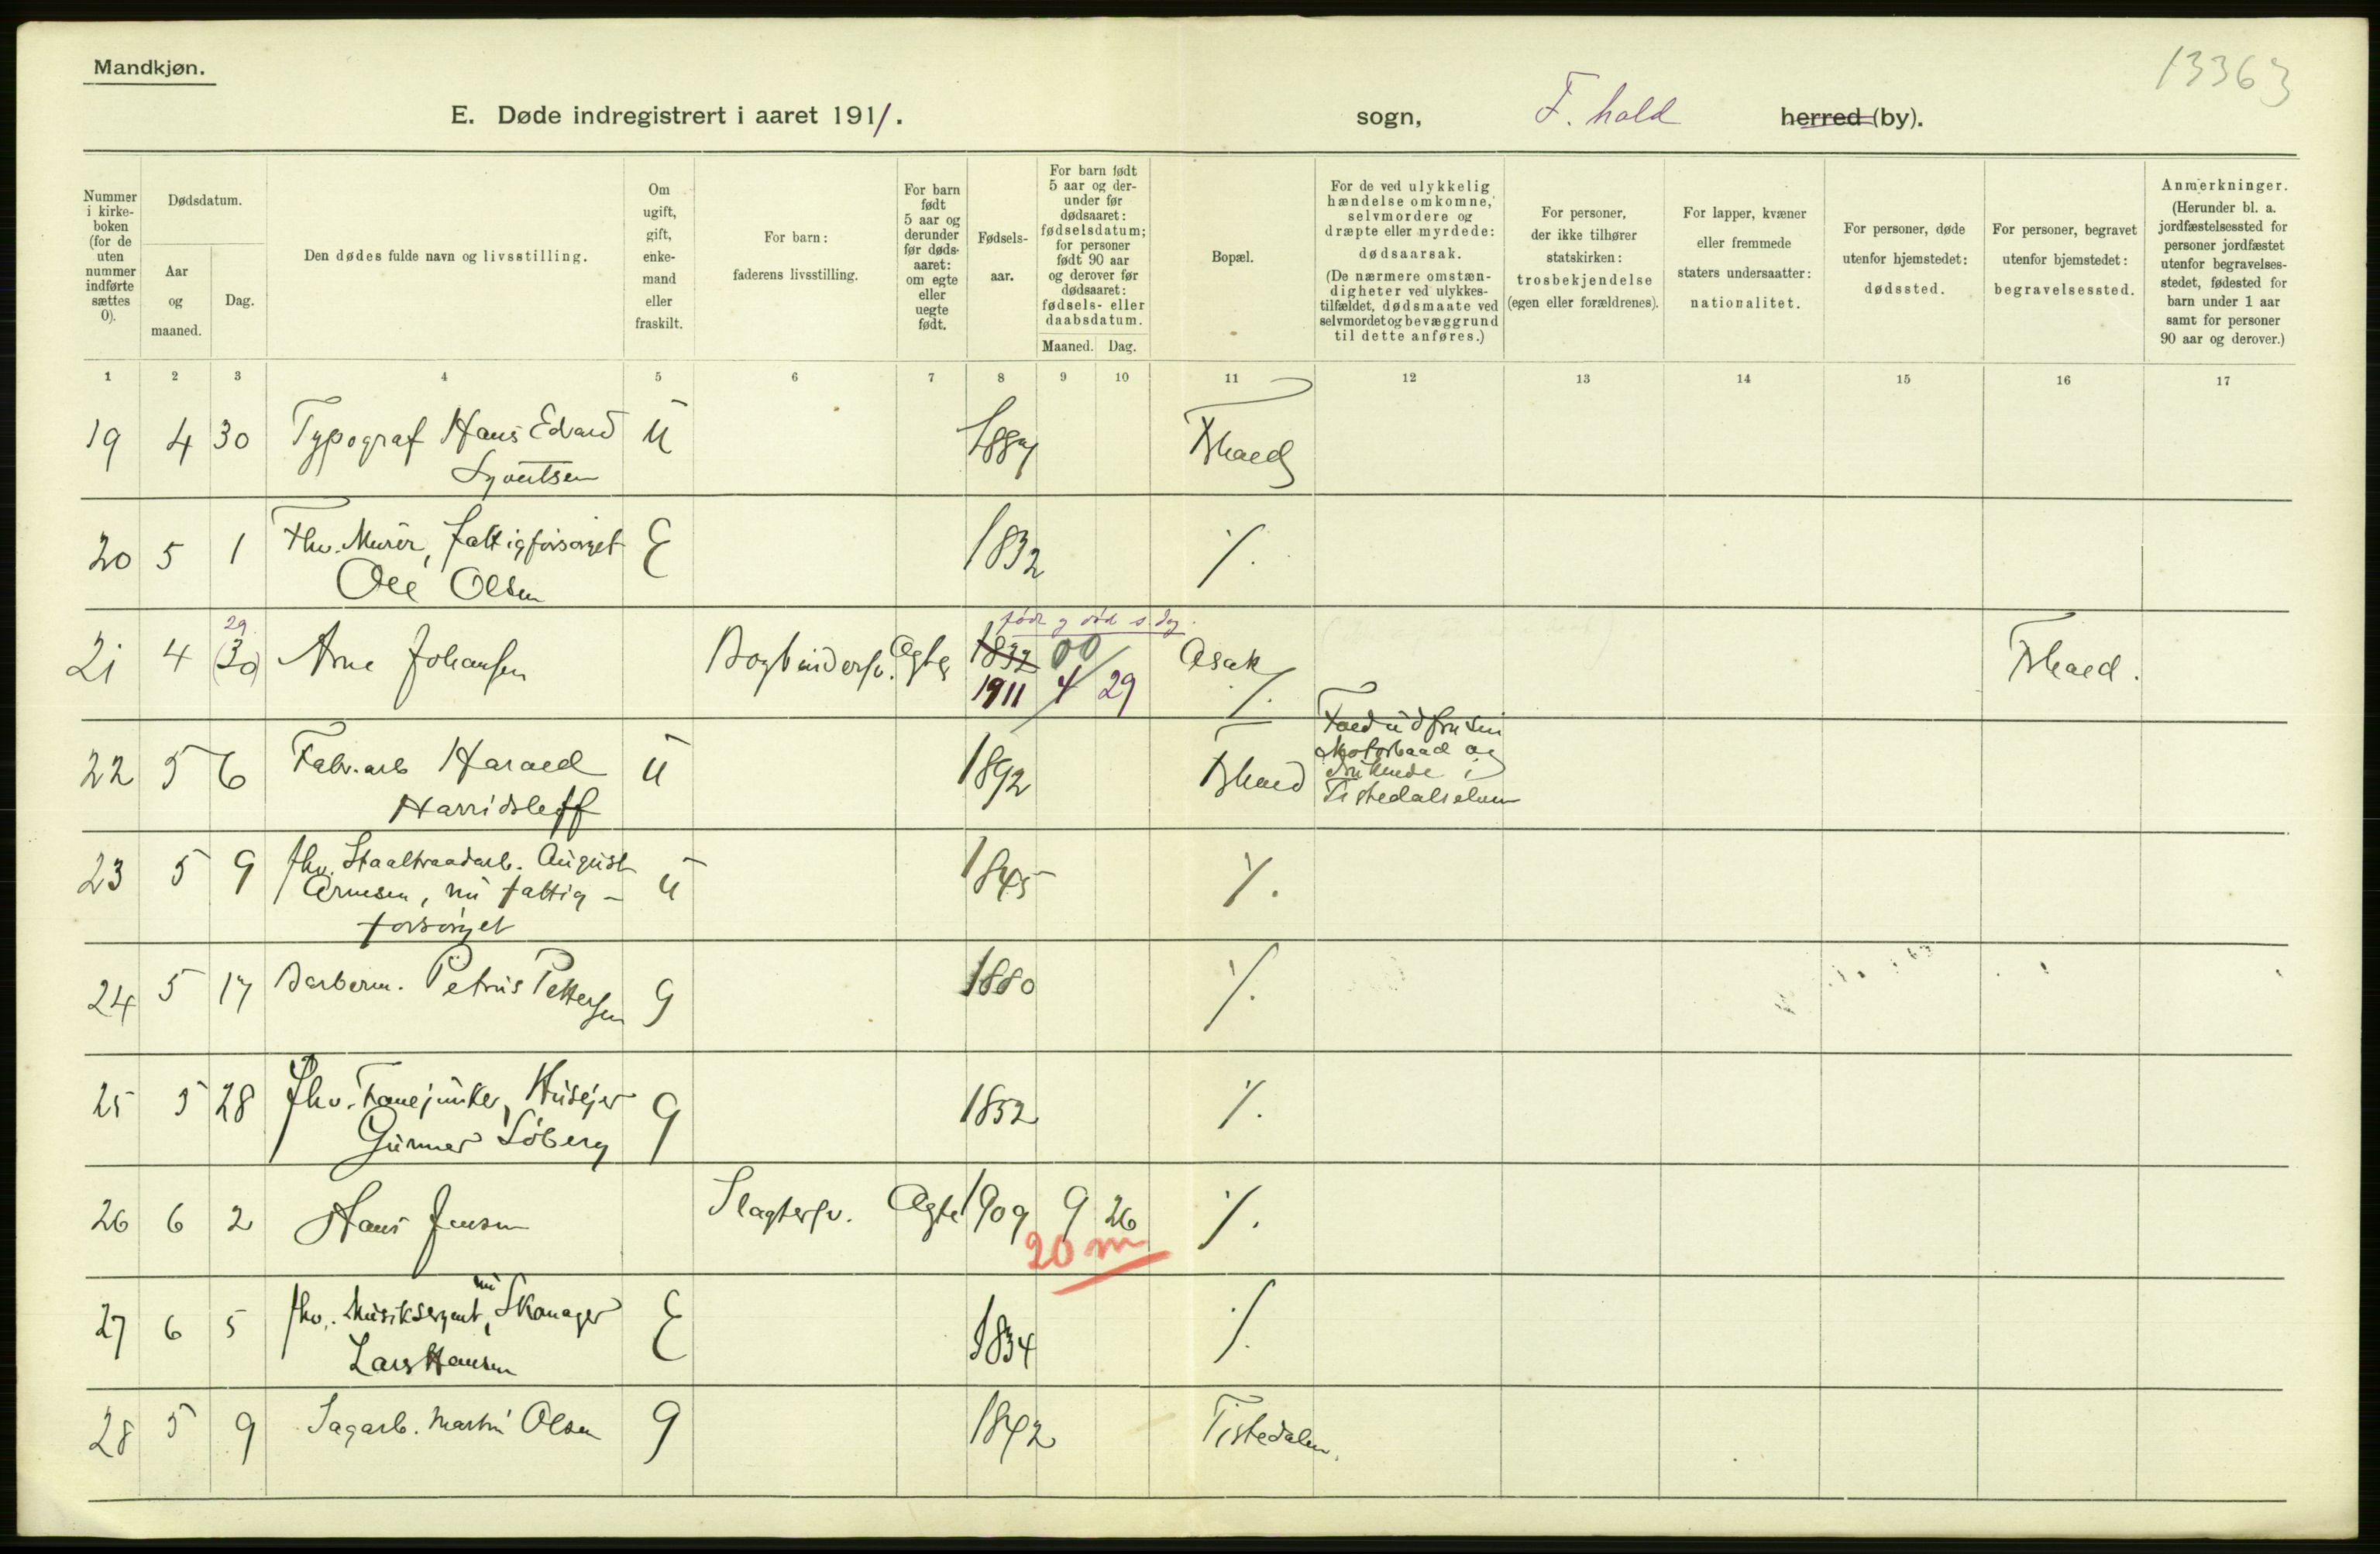 Mandkjøn.
13363
E. Døde indregistrert i aaret 1911.
sogn, F.hald herred (by).
Nummer i kirke-boken (for de uten nummer indførte sættes 0).
Dødsdatum.
Aar og maaned.
Dag.
Den dødes fulde navn og livsstilling.
Om ugift, gift, enke-mand eller fraskilt.
For barn: faderens livsstilling.
For barn født 5 aar og derunder før døds-aaret: om egte eller uegte født.
Fødsels-aar.
For barn født 5 aar og der-under før dødsaaret: fødselsdatum; for personer født 90 aar og derover før dødsaaret: fødsels- eller daabsdatum.
Maaned. Dag.
Bopæl.
For de ved ulykkelig hændelse omkomne, selvmordere og dræpte eller myrdede: dødsaarsak. (De nærmere omstæn-digheter ved ulykkes-tilfældet, dødsmaate ved selvmordet og bevæggrund til dette anføres.)
For personer, der ikke tilhører statskirken: trosbekjendelse (egen eller forældrenes).
For lapper, kvæner eller fremmede staters undersaatter: nationalitet.
For personer, døde utenfor hjemstedet: dødssted.
For personer, begravet utenfor hjemstedet: begravelsessted.
Anmerkninger. (Herunder bl. a. jordfæstelsessted for personer jordfæstet utenfor begravelses-stedet, fødested for barn under 1 aar samt for personer 90 aar og derover.)
1 2 3 4 5 6 7 8 9 10 11 12 13 14 15 16 17
19 4 30 Typograf Hans Edvard U 1887 Fhald
Syvertsen
20 5 1 Fhv. Murer, fattigforsørget E 1832 ⁒
Ole Olsen
29 født og død s. dag.
21 4 (30) Arne Johansen Bogbindersv. Ægte 1832 00 Asak Fhald.
1911 4 29 ⁒
22 5 6 Fabr.arb Harald U 1892 Fhald Fald ud fra sin
Harridsleff Motorbaad og
druknede i
Tistedalselven
23 5 9 fhv. Staaltraadarb. August U 1845 ⁒
Arnesen, nu fattig-
forsørget
24 5 17 Barberm. Petrus Pettersen G 1880 ⁒
25 5 28 fhv. Fanejunker, Husejer G 1852 ⁒
Gunner Söberg
26 6 2 Hans Jensen Slagtersv. Ægte 1909 9 26 ⁒
20 m
nu
27 6 5 fhv. Musiksergent, Skomager E 1834 ⁒
Lars Hansen
28 5 9 Sagarb. Martin Olsen G 1842 Tistedalen.